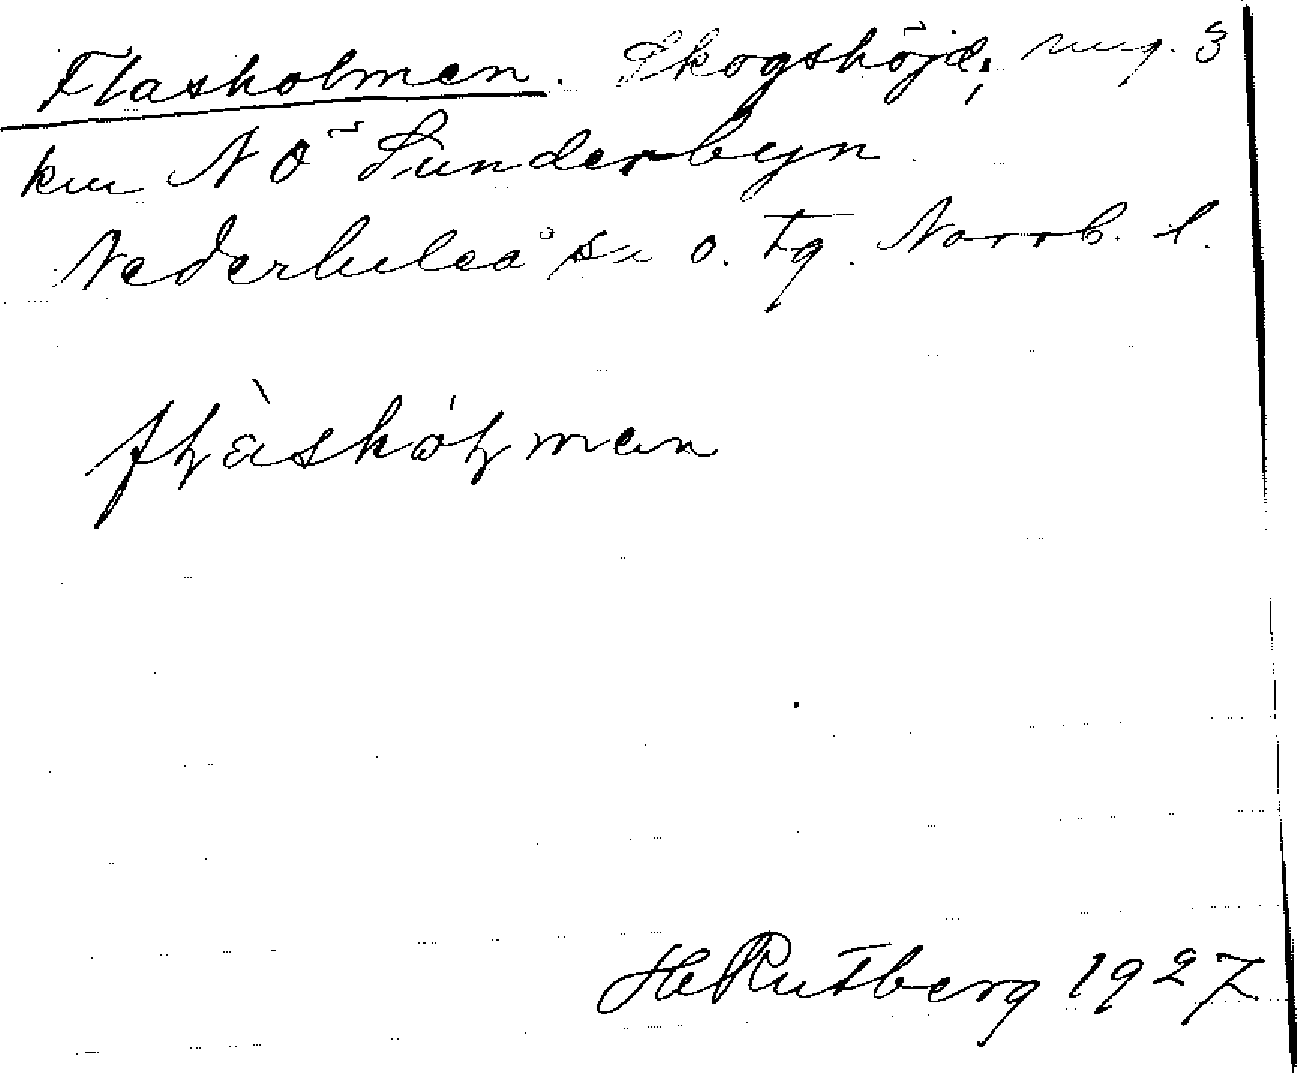 Flasholmen. Skogshöjd, ung. 3
km NÖ Sunderbyn
Nederluleå sn o. tg. Norrb. l.
fɽàshóɽmen
H Rutberg 1927